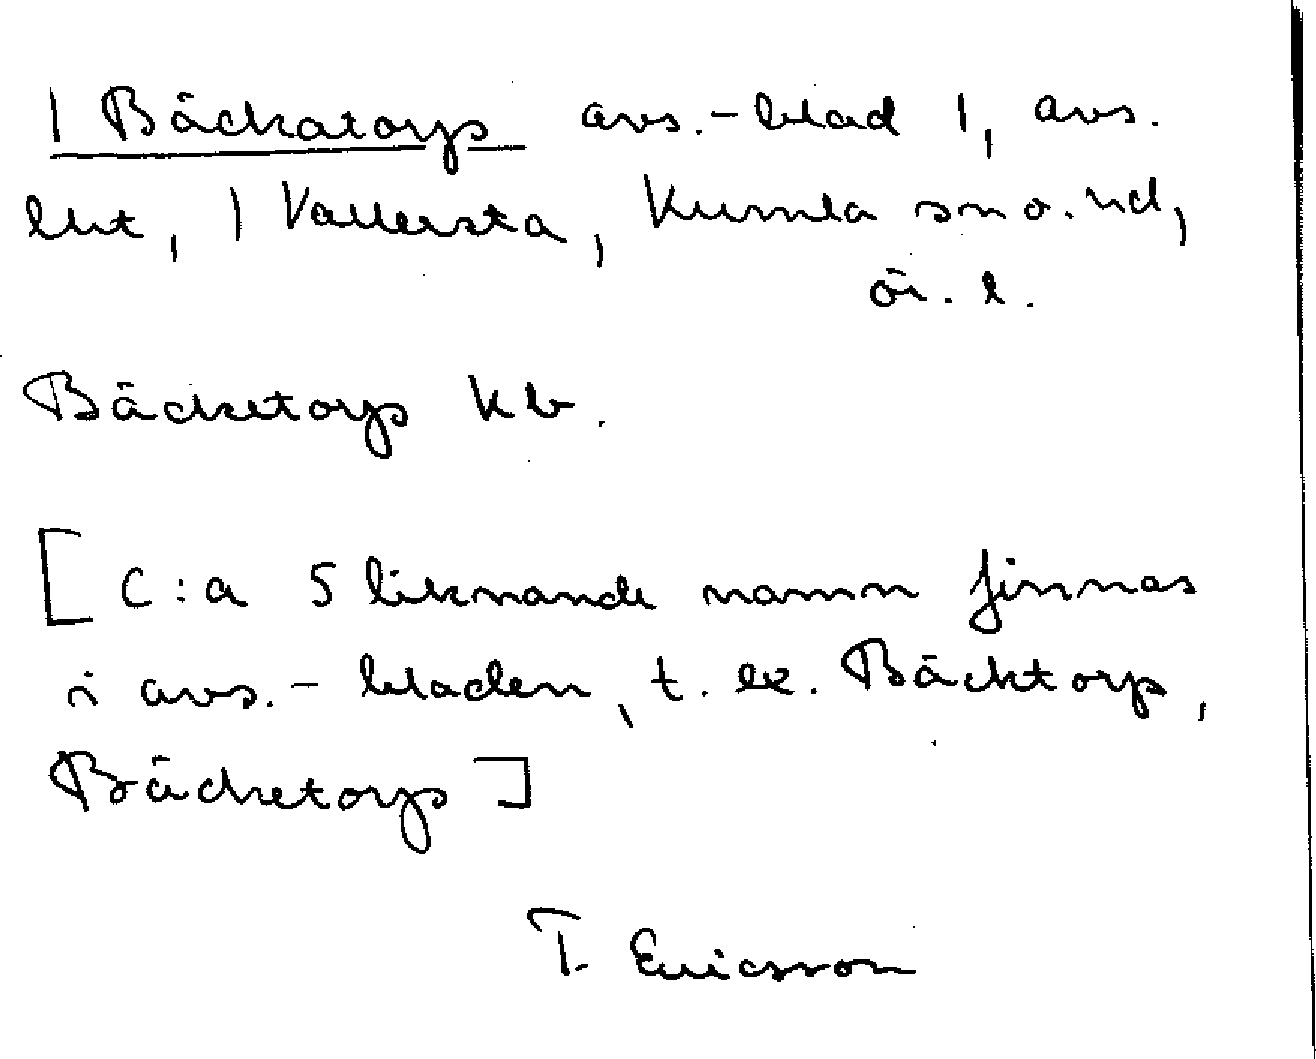 1 Bäckatorp avs.-blad 1, avs.
lht, 1 Vallersta, Kumla sn o. hd,
ör. l.
Bäcketorp kb.
[C:a 5 liknande namn finnas
i avs.-bladen, t. ex. Bäcktorp,
Bäcketorp]
T. Ericsson